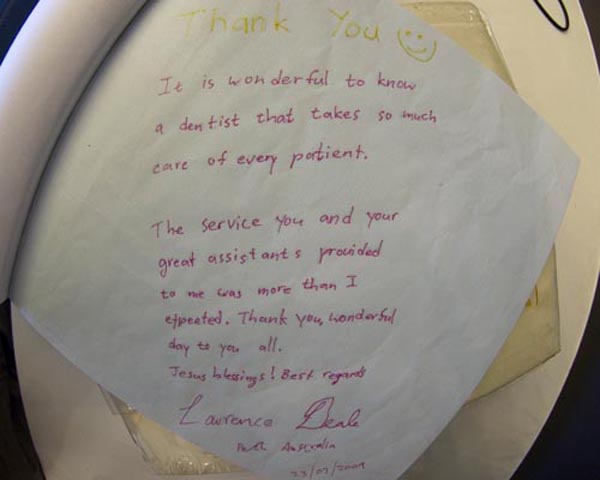 Thank You
It is wonderful to know
a dentist that takes so much
care of every patient.
The service you and your
great assistants provided
to me was more than I
expected. Thank you, wonderful
day to you all.
Jesus blessings! Best regards
Lawrence
Perth Australia